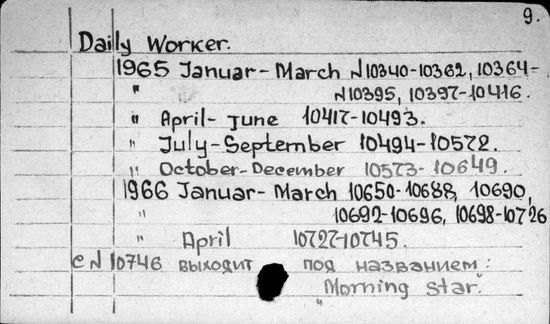 9.
Daily Worker.
1965 Januar-March N10340-10362, 10364-
" N10395, 10397-10416.
" April-June 10417-10493.
" July-September 10494-10572.
" October-December 10573-10649.
1966 Januar-March 10650-10688, 10690,
" 10692-10696, 10698-10726
" April 10727-10745.
с N 10746 выходит под названием:
"Morning Star."